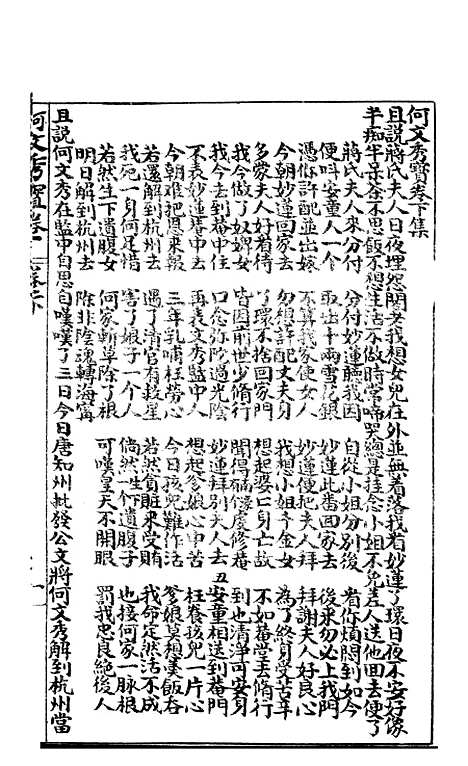 何文秀寶卷下集
且說蔣氏夫人日夜埋怨悶女我想女兒在外並無着落我看妙蓮丫環日夜不安好像
半痴半呆茶不思飯不想生活不做時常啼哭總是挂念小姐不免差人送他回去便了
蔣氏夫人來分付 分付妙蓮聽我因 自從小姐分別後 看你煩悶到如今
便叫安童人一个 取出十兩雪花銀 妙蓮此番回家去 後來勿必上我門
憑你許配並出嫁 不算我家使女人 妙蓮便把夫人拜 拜謝夫人好良心
今朝妙蓮回家去 勿想許配丈夫身 我想小姐千金女 為了終身受苦辛
多蒙夫人好看待 丫環不捨回家門 想起婆亡身亡故 不如菴堂去脩行
我今做了奴婢女 皆因前世少脩行 聞得 慶修菴 到也清淨可安身
我今去到菴中住 口念弥陀過光陰 妙蓮拜別夫人去 安童相送到菴門
不表妙蓮菴中去 再表文秀監中人 想起爹娘心中苦 枉養孩兒一片心
今朝难把恩來報 三年乳哺枉勞心 今日孩兒難作活 爹娘莫想羹飯吞
若還解到杭州去 遇了清官有救星 若然貪賍來受賄 我命定然活不成
我死一身何足惜 害了娘子一个人 倘然生下遺腹子 也接何家一脉根
若然生下遺腹女 何家斬草除了根 可嘆皇天不開眼 罰我忠良絕後人
明日解到杭州去 除非陰魂轉海甯
且說何文秀在監中自思自嘆嘆了三日今日唐知州批發公文將何文秀解到杭州當
何文秀寶卷